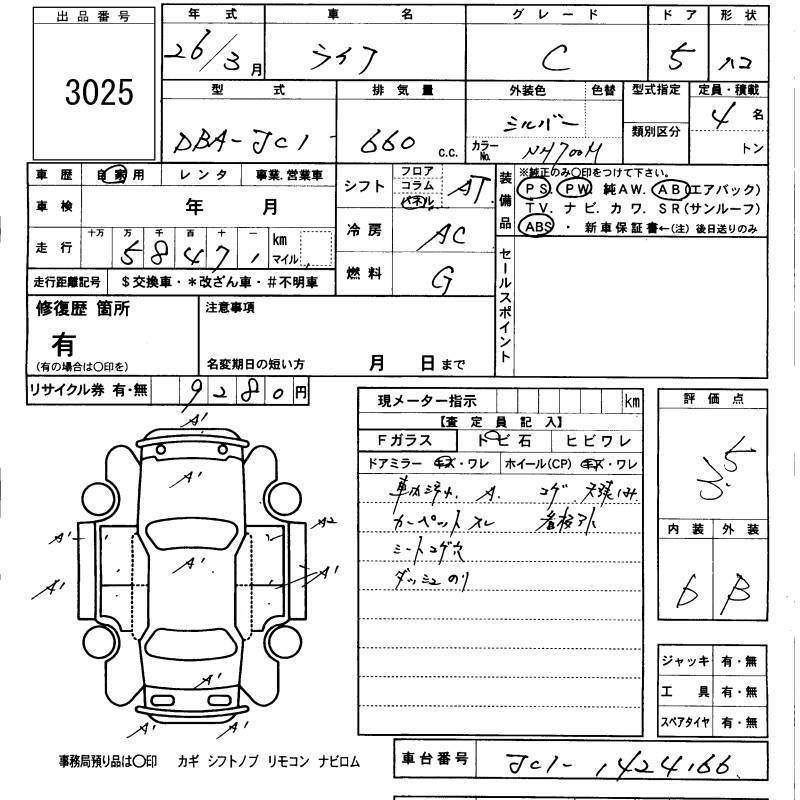 出品番号 年式 車名 グレード ドア 形状
3025 26/3月 ライフ C 5 ハコ
型式 排気量 外装色 色替 型式指定 定員・積載
DBA-JC1 660 c.c. シルバー 類別区分 4名
カラーNo. NH700M トン
車歴 自家用 レンタ 事業.営業車
シフト フロア コラム パネル AT
装備品 ※純正のみ○印をつけて下さい。
PS. PW. 純AW. AB(エアバック)
TV. ナビ. カワ. SR(サンルーフ)
ABS . 新車保証書←(注)後日送りのみ
車検 年 月
冷房 AC
走行 十万 万 千 百 十 一 km マイル
58471
燃料 G
走行距離記号 $交換車・*改ざん車・#不明車
セールスポイント
修復歴 箇所 注意事項
有
(有の場合は○印を) 名変期日の短い方 月 日まで
リサイクル券 有・無 9280円
現メーター指示 km
評価点
3.5
【査定員記入】
Fガラス トビ石 ヒビワレ
ドアミラー キズ・ワレ ホイール(CP) キズ・ワレ
車内汚れ. A. コゲ 天張しみ
カーペットスレ 看板跡
シートコゲ穴
ダッシュのり
内装 外装
D B
A' A' A' A2 A' A' A' A' A' A' A'
ジャッキ 有・無
工具 有・無
スペアタイヤ 有・無
事務局預り品は○印 カギ シフトノブ リモコン ナビロム
車台番号 JC1-1424166